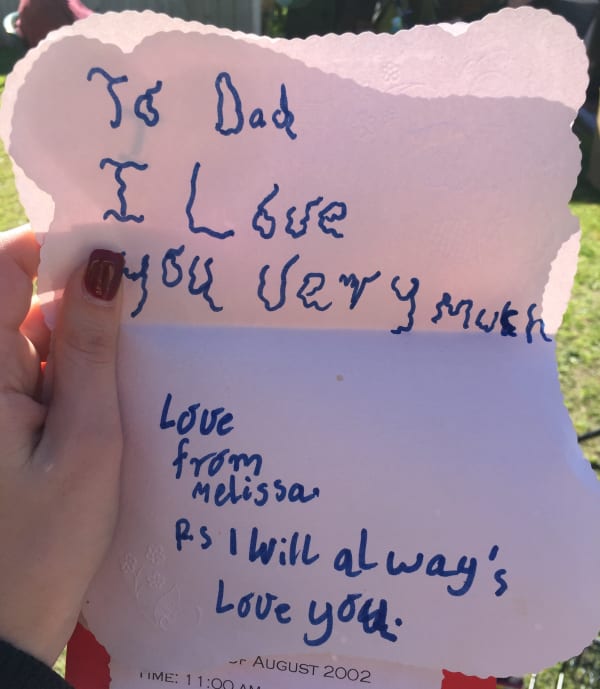 To Dad
I Love
you Very much
Love
from
Melissa.
P.s I Will always's
Love you.
AUGUST 2002
TIME: 11:00 AM